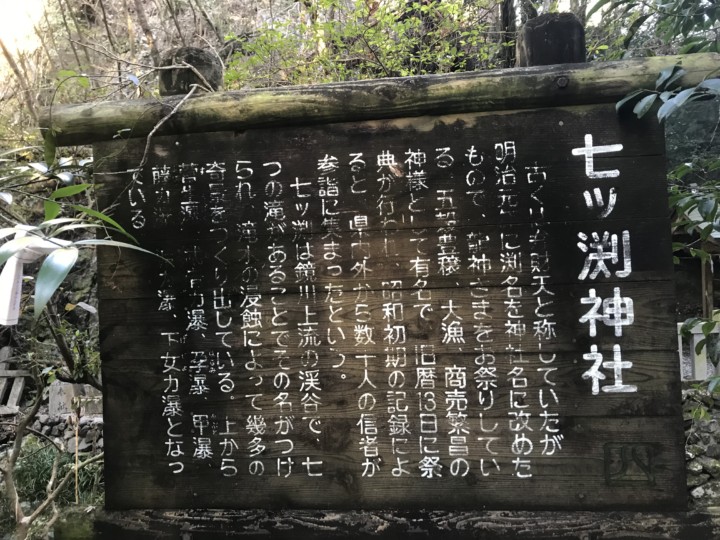 七ツ渕神社
古くは 天と称していたが
明治 に渕名を神社名に改めた
もので、 神さまをお祭りしてい
る。五穀豊穣、大漁、商売繁昌の
神様として有名で、旧暦13日に祭
典が行われ、昭和初期の記録によ
ると、県内外から数千人の信者が
参詣に集まったという。
七ツ渕は鏡川上流の渓谷で、七
つの滝があることでその名がつけ
られ、 水の浸蝕によって幾多の
奇景をつくり出している。上から
瀑、 瀑、 瀑、甲瀑、
瀑、下女力瀑となっ
ている